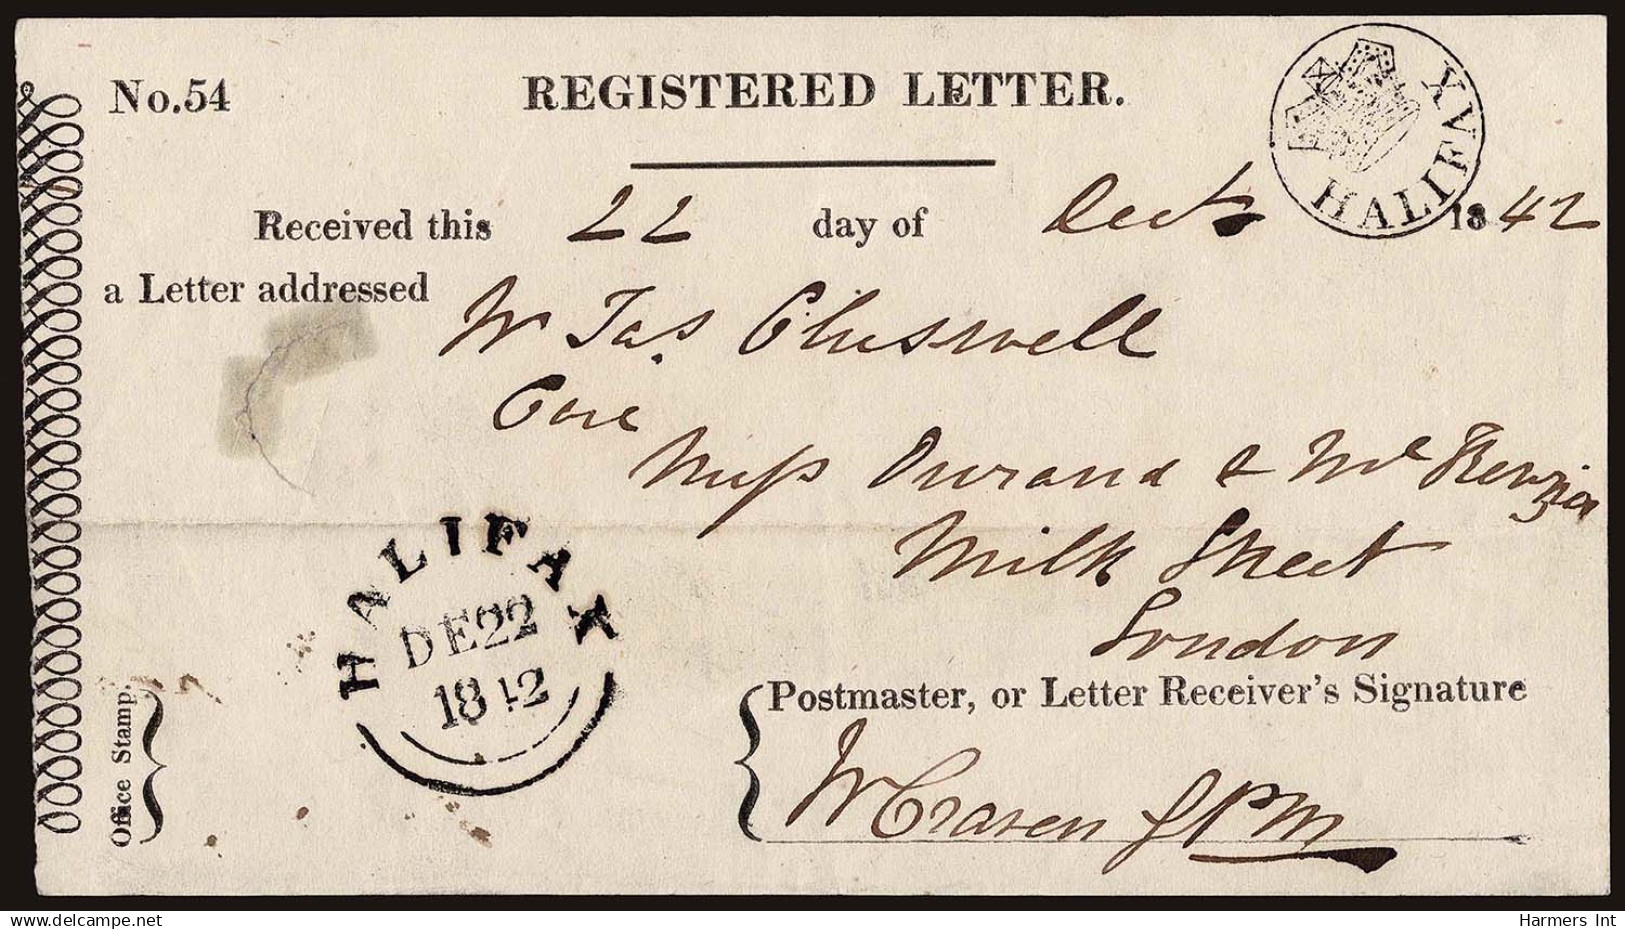 No.54
REGISTERED LETTER.
HALIFAX
Received this 22 day of Decr 1842
a Letter addressed
Mr Jas Chiswell
Care
Messrs Durand & Mc
Milk Street
London
HALIFAX
DE22
1842
Office Stamp.
Postmaster, or Letter Receiver's Signature
W Craven PM
www.delcampe.net
Harmers Int